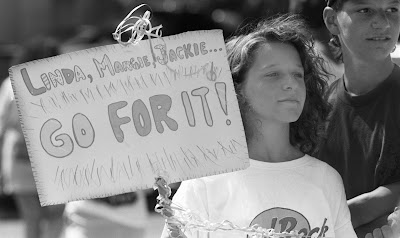 LINDA, MARGIE, JACKIE...
GO FOR IT!
Rock